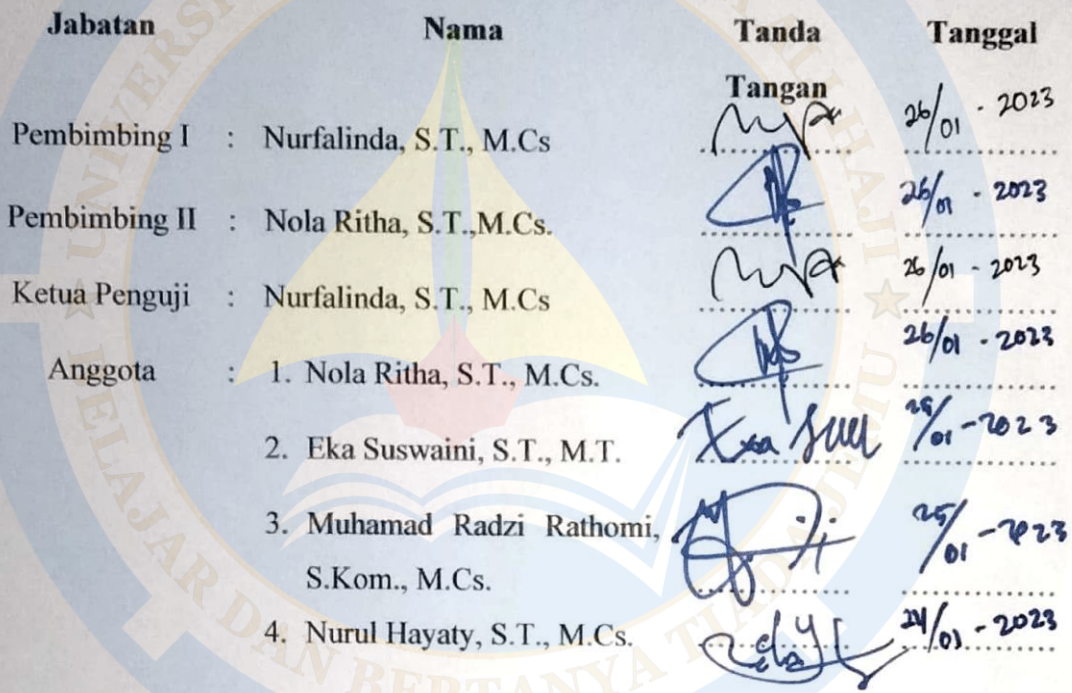 Jabatan Nama Tanda Tangan Tanggal
Pembimbing I : Nurfalinda, S.T., M.Cs 26/01 - 2023
Pembimbing II : Nola Ritha, S.T.,M.Cs. 26/01 - 2023
Ketua Penguji : Nurfalinda, S.T., M.Cs 26/01 - 2023
Anggota : 1. Nola Ritha, S.T., M.Cs. 26/01 - 2023
2. Eka Suswaini, S.T., M.T. 25/01 - 2023
3. Muhamad Radzi Rathomi, 25/01 - 2023
S.Kom., M.Cs.
4. Nurul Hayaty, S.T., M.Cs. 24/01 - 2023
BELAJAR DAN BERTANYA TIADA JEMU